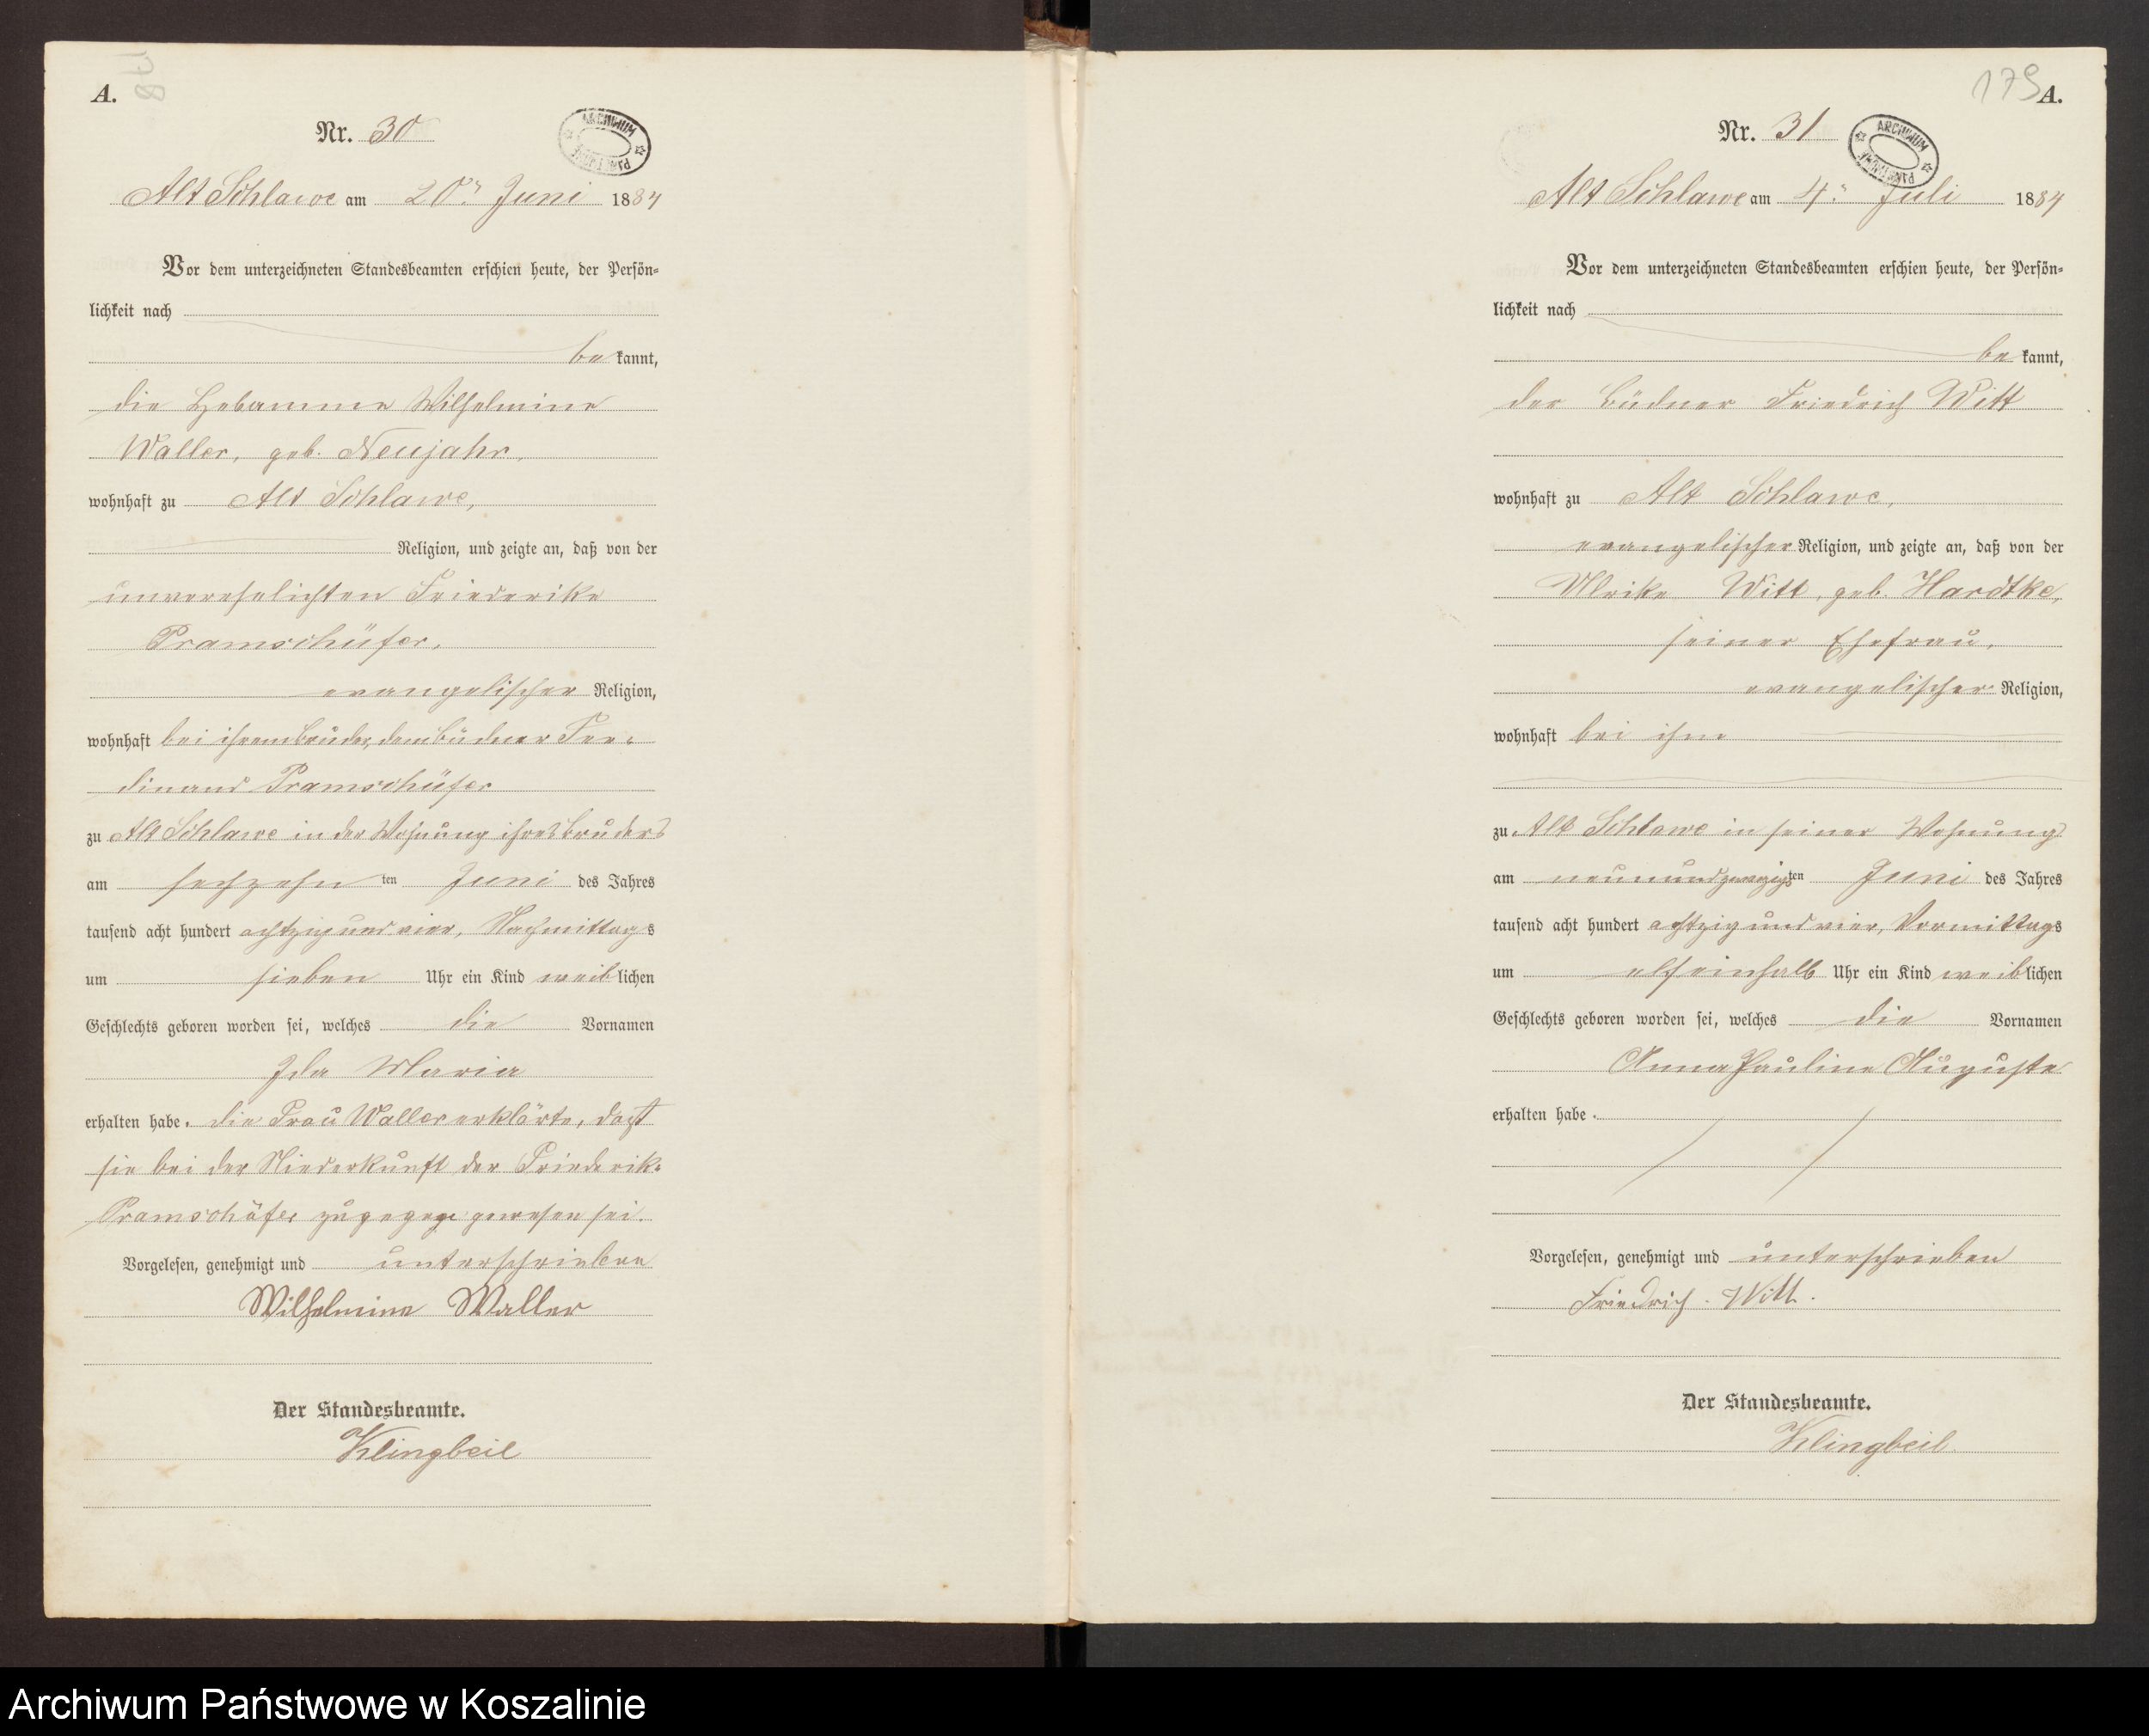 A.
178
Nr. 30
ARCHIWUM PAŃSTWOWE
Alt Schlawe am 20ten Juni 1884
Vor dem unterzeichneten Standesbeamten erschien heute, der Persön-
lichkeit nach
be kannt,
die Hebamme Wilhelmine
Waller, geb. Neujahr,
wohnhaft zu Alt Schlawe,
Religion, und zeigte an, daß von der
unverehelichten Friederike
Pramschüfer,
evangelischer Religion,
wohnhaft bei ihrem Bruder, dem Büdner Fer-
dinand Pramschüfer
zu Alt Schlawe in der Wohnung ihres Bruders
am sechzehn ten Juni des Jahres
tausend acht hundert achtzig und vier, Nachmittags
um sieben Uhr ein Kind weiblichen
Geschlechts geboren worden sei, welches die Vornamen
Ida Maria
erhalten habe. Die Frau Waller erklärte, daß
sie bei der Niederkunft der Friederike
Pramschäfer zugegen gewesen sei.
Vorgelesen, genehmigt und unterschrieben
Wilhelmine Waller
Der Standesbeamte.
Klingbeil
179
A.
Nr. 31
ARCHIWUM PAŃSTWOWE
Alt Schlawe am 4. Juli 1884
Vor dem unterzeichneten Standesbeamten erschien heute, der Persön-
lichkeit nach
be kannt,
der Büdner Friedrich Witt
wohnhaft zu Alt Schlawe,
evangelischer Religion, und zeigte an, daß von der
Ulrike Witt, geb. Hardtke,
seiner Ehefrau,
evangelischer Religion,
wohnhaft bei ihm
zu Alt Schlawe in seiner Wohnung
am neunundzwanzigsten Juni des Jahres
tausend acht hundert achtzig und vier, Vormittags
um elfeinhalb Uhr ein Kind weiblichen
Geschlechts geboren worden sei, welches die Vornamen
Anna Pauline Auguste
erhalten habe.
Vorgelesen, genehmigt und unterschrieben
Friedrich Witt.
Der Standesbeamte.
Klingbeil
Archiwum Państwowe w Koszalinie